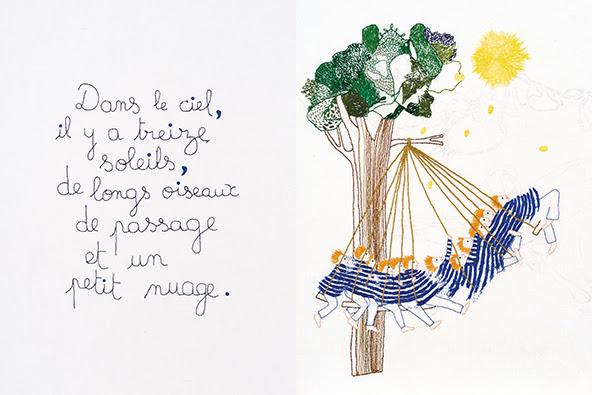 Dans le ciel,
il y a treize
soleils,
de longs oiseaux
de passage
et un
petit nuage.